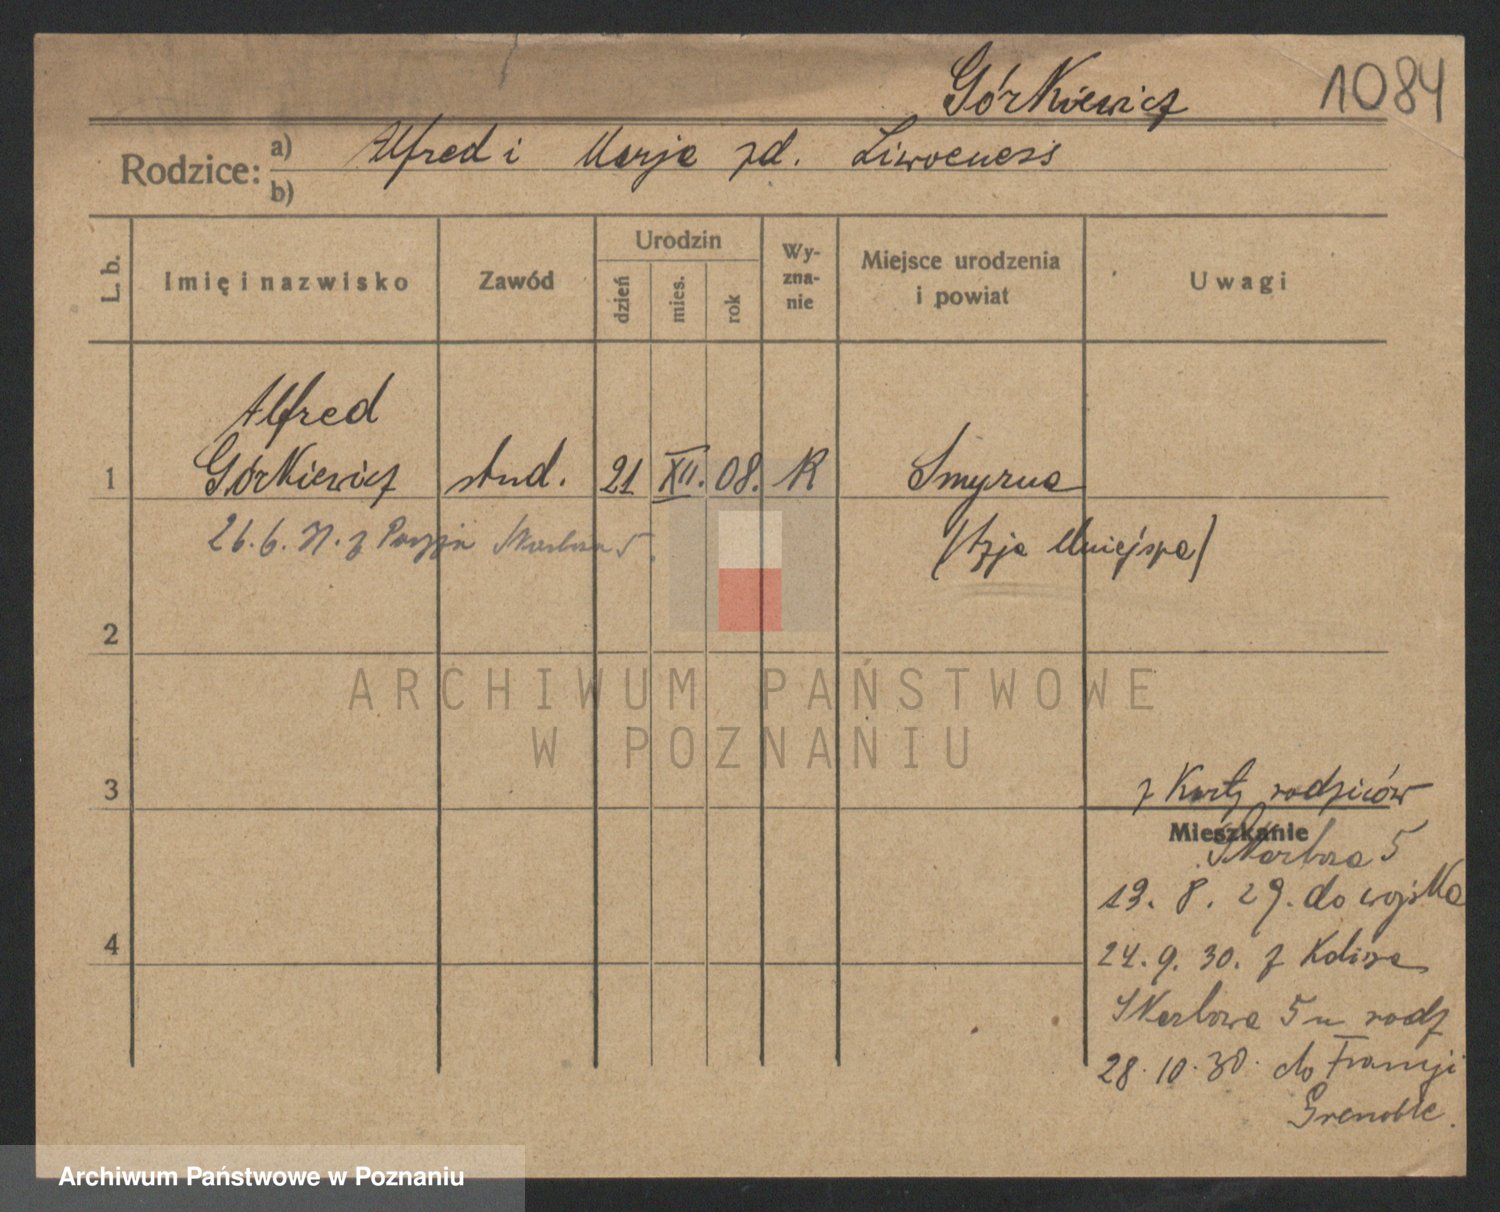 Górkiewicz 1084
Rodzice: a) Alfred i Marja zd.
b)
L. b.
Imię i nazwisko
Zawód
Urodzin
dzień
mies.
rok
Wy-
zna-
nie
Miejsce urodzenia
i powiat
Uwagi
Alfred
1 Górkiewicz stud. 21 XII. 08. R Smyrna
26.6.31. z Paryża Skarbowa 5.
(Azja Mniejsza)
2
ARCHIWUM PAŃSTWOWE
W POZNANIU
3
z Karty rodziców
Mieszkanie
Skarbowa 5
13. 8. 29. do wojska
4
24. 9. 30. z
Skarbowa 5 u rodz
28. 10. 30. do Francji
Grenoble.
Archiwum Państwowe w Poznaniu